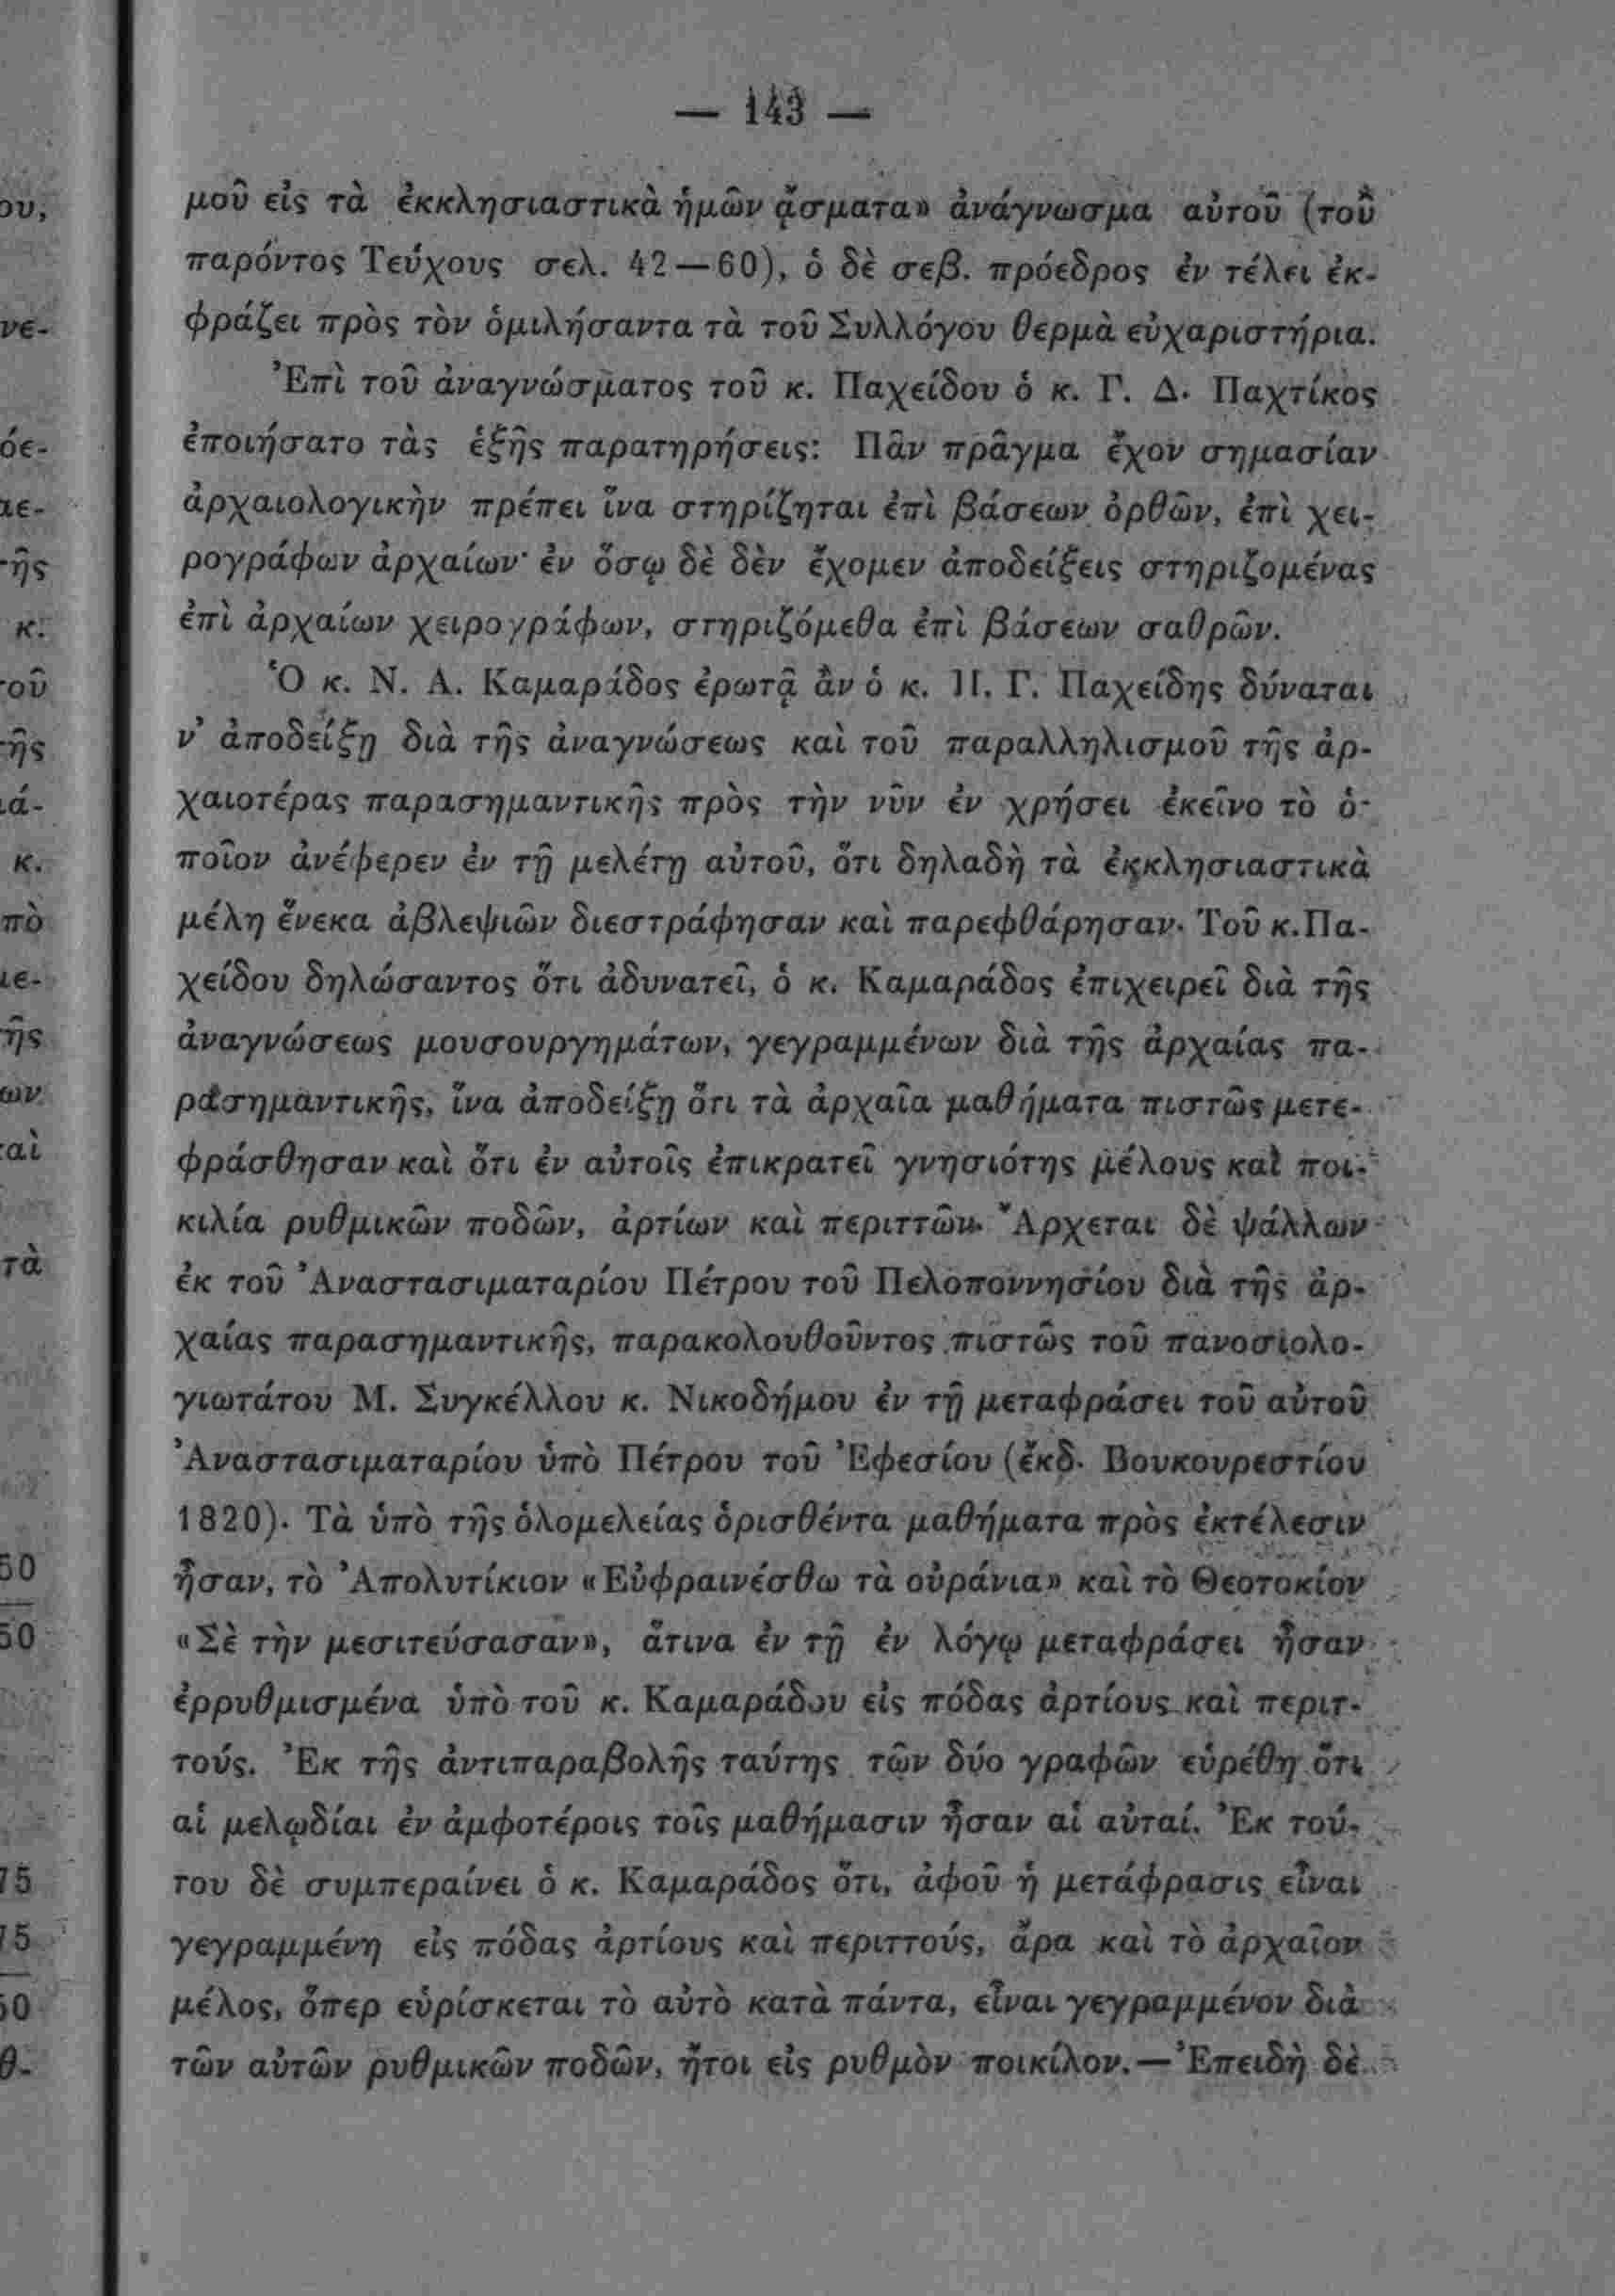 — 143 —
μοῦ εἰς τὰ ἐκκλησιαστικὰ ἡμῶν ᾄσματα» ἀνάγνωσμα αὐτοῦ (τοῦ
παρόντος Τεύχους σελ. 42—60), ὁ δὲ σεβ. πρόεδρος ἐν τέλει ἐκ-
φράζει πρὸς τὸν ὁμιλήσαντα τὰ τοῦ Συλλόγου θερμὰ εὐχαριστήρια.
Ἐπὶ τοῦ ἀναγνώσματος τοῦ κ. Παχείδου ὁ κ. Γ. Δ. Παχτίκος
ἐποιήσατο τὰς ἑξῆς παρατηρήσεις: Πᾶν πρᾶγμα ἔχον σημασίαν
ἀρχαιολογικὴν πρέπει ἵνα στηρίζηται ἐπὶ βάσεων ὀρθῶν, ἐπὶ χει-
ρογράφων ἀρχαίων· ἐν ὅσῳ δὲ δὲν ἔχομεν ἀποδείξεις στηριζομένας
ἐπὶ ἀρχαίων χειρογράφων, στηριζόμεθα ἐπὶ βάσεων σαθρῶν.
Ὁ κ. Ν. Α. Καμαράδος ἐρωτᾷ ἂν ὁ κ. Π. Γ. Παχείδης δύναται
ν' ἀποδείξῃ διὰ τῆς ἀναγνώσεως καὶ τοῦ παραλληλισμοῦ τῆς ἀρ-
χαιοτέρας παρασημαντικῆς πρὸς τὴν νῦν ἐν χρήσει ἐκεῖνο τὸ ὁ-
ποῖον ἀνέφερεν ἐν τῇ μελέτῃ αὐτοῦ, ὅτι δηλαδὴ τὰ ἐκκλησιαστικὰ
μέλη ἕνεκα ἀβλεψιῶν διεστράφησαν καὶ παρεφθάρησαν. Τοῦ κ. Πα-
χείδου δηλώσαντος ὅτι ἀδυνατεῖ, ὁ κ. Καμαράδος ἐπιχειρεῖ διὰ τῆς
ἀναγνώσεως μουσουργημάτων, γεγραμμένων διὰ τῆς ἀρχαίας πα-
ρασημαντικῆς, ἵνα ἀποδείξῃ ὅτι τὰ ἀρχαῖα μαθήματα πιστῶς μετε-
φράσθησαν καὶ ὅτι ἐν αὐτοῖς ἐπικρατεῖ γνησιότης μέλους καὶ ποι-
κιλία ρυθμικῶν ποδῶν, ἀρτίων καὶ περιττῶν. Ἄρχεται δὲ ψάλλων
ἐκ τοῦ Ἀναστασιματαρίου Πέτρου τοῦ Πελοποννησίου διὰ τῆς ἀρ-
χαίας παρασημαντικῆς, παρακολουθοῦντος πιστῶς τοῦ πανοσιολο-
γιωτάτου Μ. Συγκέλλου κ. Νικοδήμου ἐν τῇ μεταφράσει τοῦ αὐτοῦ
Ἀναστασιματαρίου ὑπὸ Πέτρου τοῦ Ἐφεσίου (ἔκδ. Βουκουρεστίου
1820). Τὰ ὑπὸ τῆς ὁλομελείας ὁρισθέντα μαθήματα πρὸς ἐκτέλεσιν
ἦσαν, τὸ Ἀπολυτίκιον «Εὐφραινέσθω τὰ οὐράνια» καὶ τὸ Θεοτοκίον
«Σὲ τὴν μεσιτεύσασαν», ἅτινα ἐν τῇ ἐν λόγῳ μεταφράσει ἦσαν
ἐρρυθμισμένα ὑπὸ τοῦ κ. Καμαράδου εἰς πόδας ἀρτίους καὶ περιτ-
τούς. Ἐκ τῆς ἀντιπαραβολῆς ταύτης τῶν δύο γραφῶν εὑρέθη ὅτι
αἱ μελῳδίαι ἐν ἀμφοτέροις τοῖς μαθήμασιν ἦσαν αἱ αὐταί. Ἐκ τού-
του δὲ συμπεραίνει ὁ κ. Καμαράδος ὅτι, ἀφοῦ ἡ μετάφρασις εἶναι
γεγραμμένη εἰς πόδας ἀρτίους καὶ περιττούς, ἄρα καὶ τὸ ἀρχαῖον
μέλος, ὅπερ εὑρίσκεται τὸ αὐτὸ κατὰ πάντα, εἶναι γεγραμμένον διὰ
τῶν αὐτῶν ρυθμικῶν ποδῶν, ἤτοι εἰς ρυθμὸν ποικίλον.—Ἐπειδὴ δὲ